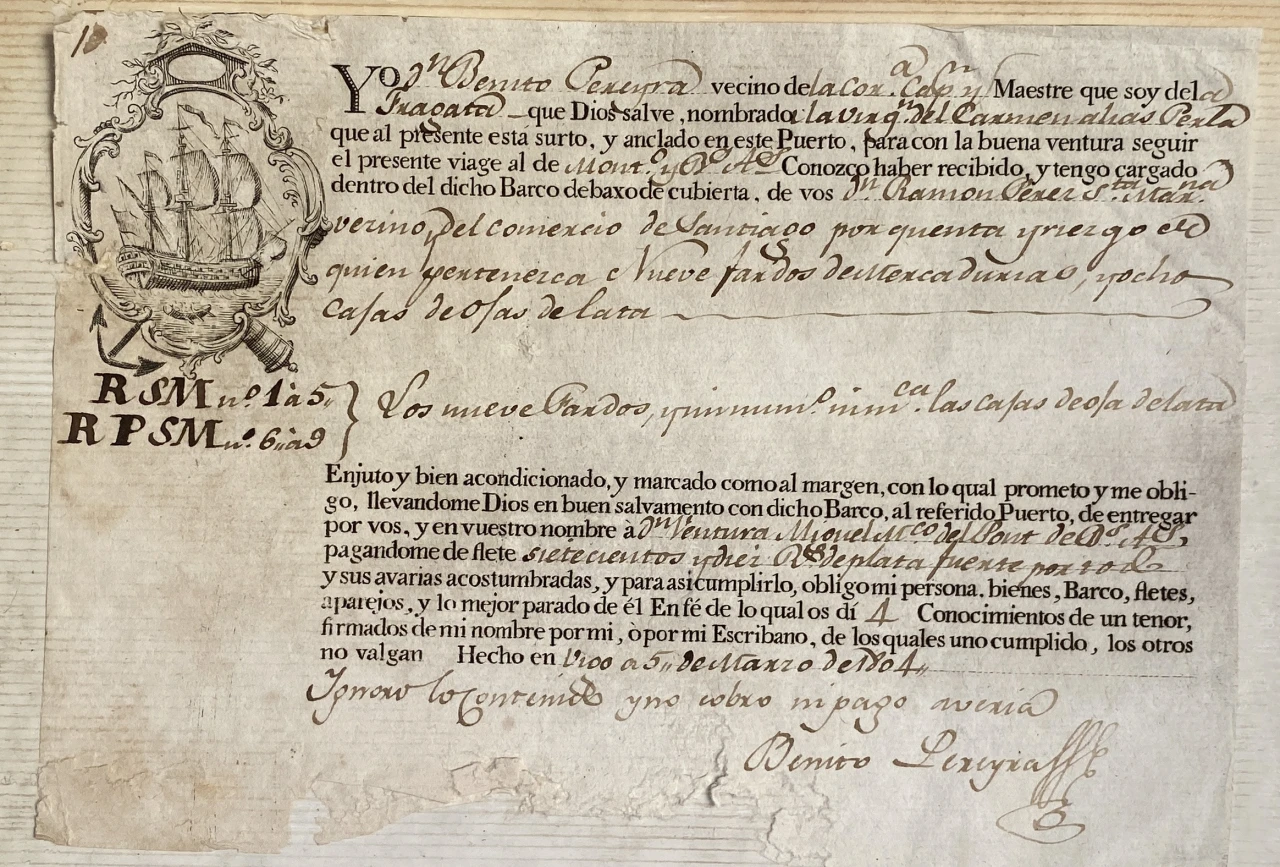 Yo Dn Benito Pereyra vecino de la Cora Capn y Maestre que soy de la
Fragata que Dios salve, nombrada la virgn del Carmen alias Perla
que al presente está surto, y anclado en este Puerto, para con la buena ventura seguir
el presente viage al de Monto y Bs As Conozco haber recibido, y tengo cargado
dentro del dicho Barco debaxo de cubierta, de vos Dn Ramon Perez Sta Marna
vecino, del comercio de Santiago por quenta y riezgo de
quien pertenezca Nueve fardos de Mercadurias, y ocho
Casas de Ojas de lata
RSM no 1 à 5,,
RPSM no 6,, à 9
Los nueve Fardos, y sin numo ni mca las casas de oja de lata
Enjuto y bien acondicionado, y marcado como al margen, con lo qual prometo y me obli-
go, llevandome Dios en buen salvamento con dicho Barco, al referido Puerto, de entregar
por vos, y en vuestro nombre à Dn Ventura Miguel Mco del Pont de Bs As
pagandome de flete sietecientos y diez Rs de plata fuerte por todo
y sus avarias acostumbradas, y para asi cumplirlo, obligo mi persona, bienes, Barco, fletes,
aparejos, y lo mejor parado de él En fé de lo qual os dí 4 Conocimientos de un tenor,
firmados de mi nombre por mi, ò por mi Escribano, de los quales uno cumplido, los otros
no valgan Hecho en Vigo a 5,, de Marzo de 1804,,
Ignoro lo Contenido y no cobro ni pago averia
Benito Pereyra